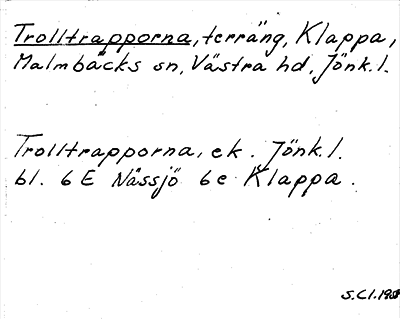 Trolltrapporna, terräng, Klappa,
Malmbäcks sn, Västra hd, Jönk.l.
Trolltrapporna, ek. Jönk.l.
bl. 6E Nässjö 6e Klappa.
S.Cl.